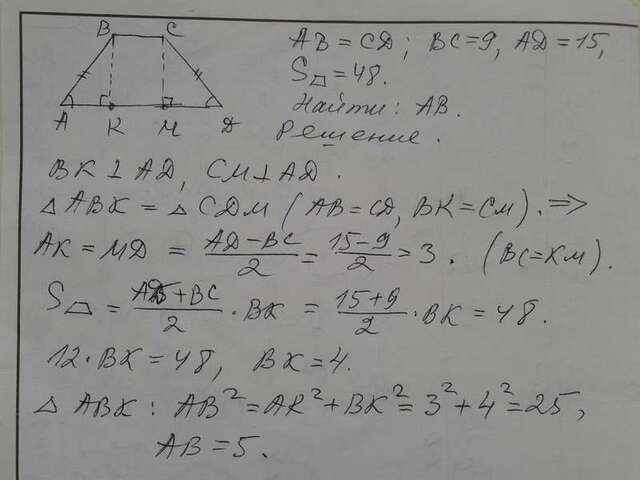 B C
A K M D
AB = CD; BC=9, AD=15,
S⏢=48.
Найти: AB.
Решение.
BK⊥AD, CM⊥AD.
△ABK = △CDM (AB=CD, BK=CM). =>
AK = MD = (AD-BC)/2 = (15-9)/2 = 3. (BC=KM).
S⏢ = (AD+BC)/2 · BK = (15+9)/2 · BK = 48.
12·BK=48, BK=4.
△ABK: AB²=AK²+BK²=3²+4²=25,
AB=5.